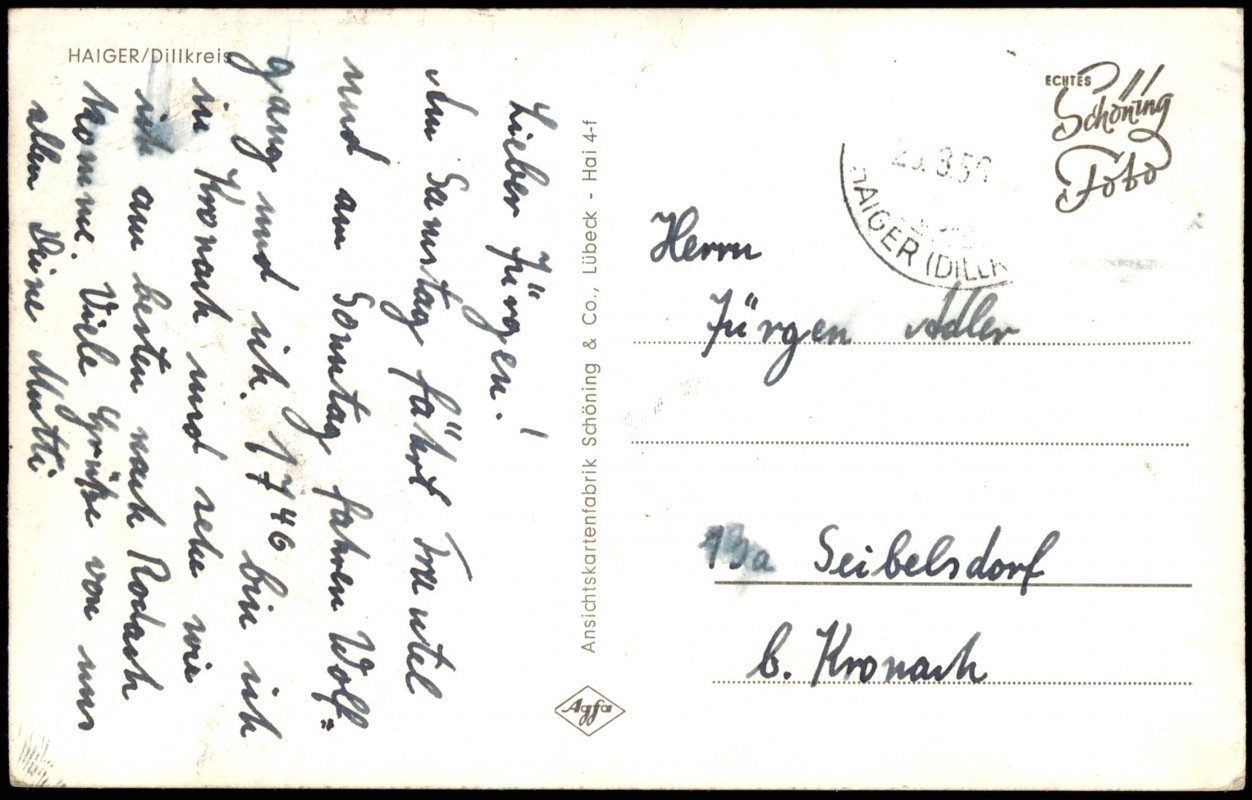 HAIGER/Dillkreis
Lieber Jürgen!
Am Samstag fährt Trautel
und am Sonntag fahren Wolf"
gang und ich. 17⁴⁶ bin ich
in Kronach und sehe wie
ich am besten nach Rodach
komme. Viele Grüße von uns
allen Deine Mutti
Ansichtskartenfabrik Schöning & Co., Lübeck - Hai 4-f
Agfa
ECHTES
Schöning
Foto
HAIGER (DILLK
Herrn
Jürgen Adler
13a Seibelsdorf
b. Kronach